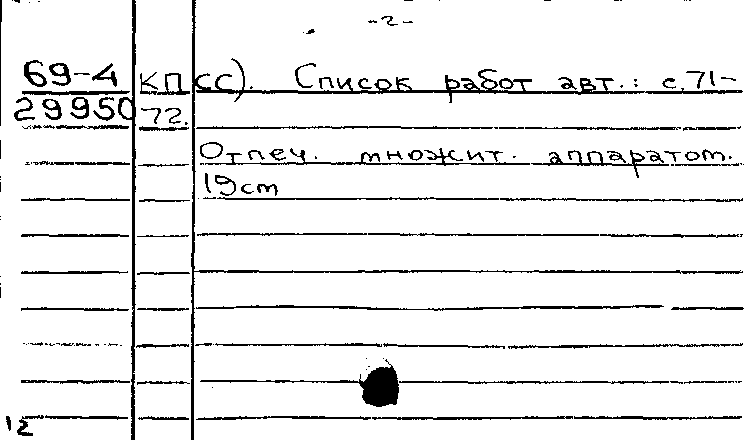 -2-
69-4 КПСС). Список работ авт.: с.71-
29950 72.
Отпеч. множит. аппаратом.
19см
12